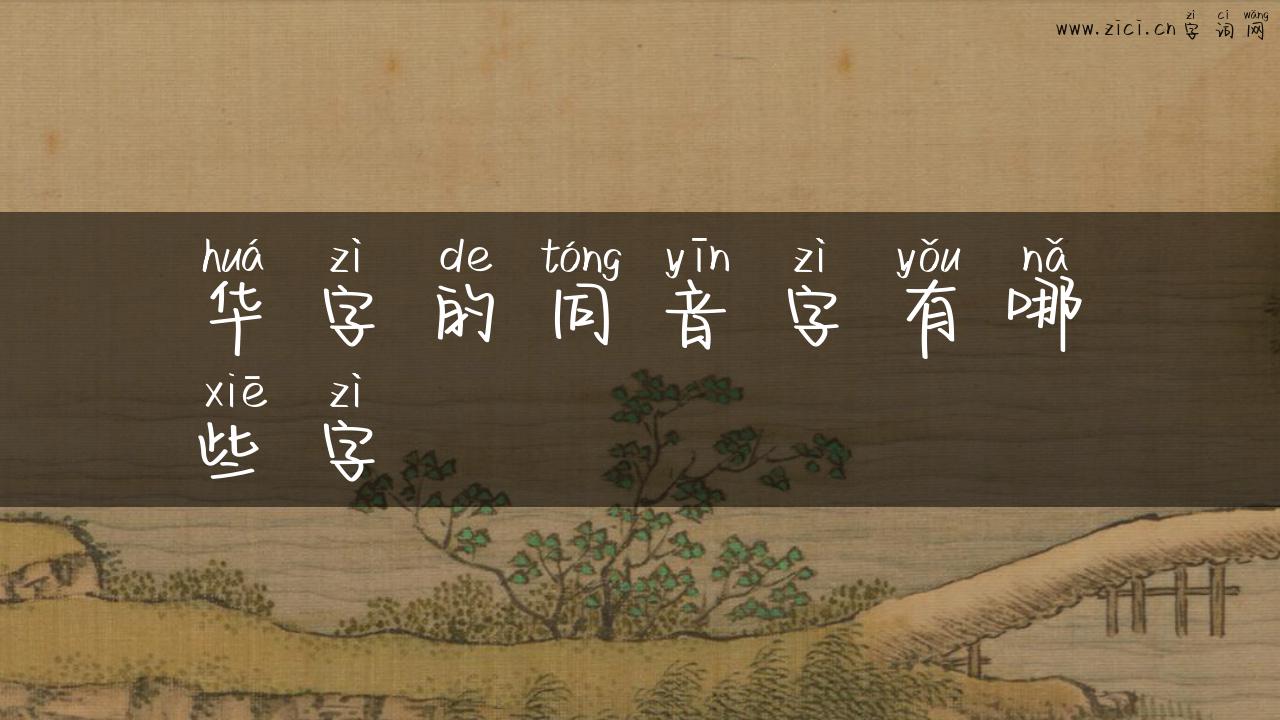 zì cí wǎng
www.zici.cn 字词网
huá zì de tóng yīn zì yǒu nǎ
华字的同音字有哪
xiē zì
些字